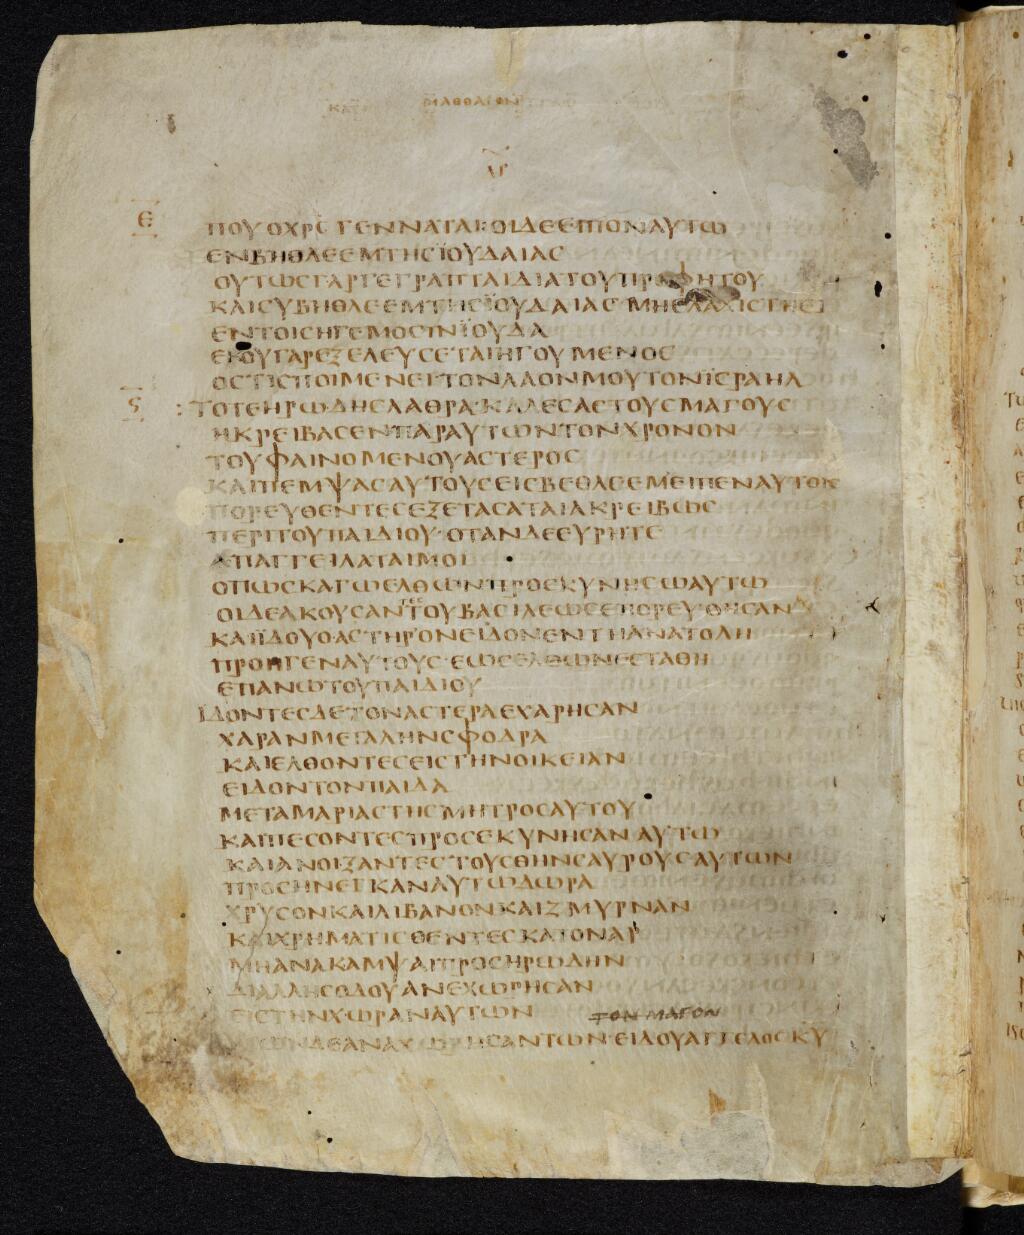 ΜΑΘΘΑΙΟΝ
Ε
ΠΟΥΟΧΡΣ ΓΕΝΝΑΤΑΙ·ΟΙΔΕΕΙΠΟΝΑΥΤΩ
ΕΝΒΗΘΛΕΕΜΤΗΣΪΟΥΔΑΙΑΣ
ΟΥΤΩΣΓΑΡΓΕΓΡΑΠΤΑΙΔΙΑΤΟΥΠΡΟΦΗΤΟΥ
ΚΑΙΣΥΒΗΘΛΕΕΜΤΗΣΪΟΥΔΑΙΑΣ·ΜΗΕΛΑΧΙΣΤΗΕΙ
ΕΝΤΟΙΣΗΓΕΜΟΣΙΝΪΟΥΔΑ
ΕΚΟΥΓΑΡΕΞΕΛΕΥΣΕΤΑΙΗΓΟΥΜΕΝΟΣ
ΟΣΤΙΣΠΟΙΜΕΝΕΙΤΟΝΛΑΟΝΜΟΥΤΟΝΪΣΡΑΗΛ
Ϛ :ΤΟΤΕΗΡΩΔΗΣΛΑΘΡΑ·ΚΑΛΕΣΑΣΤΟΥΣΜΑΓΟΥΣ
ΗΚΡΕΙΒΑΣΕΝΠΑΡΑΥΤΩΝΤΟΝΧΡΟΝΟΝ
ΤΟΥΦΑΙΝΟΜΕΝΟΥΑΣΤΕΡΟΣ
ΚΑΙΠΕΜΨΑΣΑΥΤΟΥΣΕΙΣΒΕΘΛΕΕΜΕΙΠΕΝΑΥΤΟΙΣ
ΠΟΡΕΥΘΕΝΤΕΣΕΞΕΤΑΣΑΤΑΙΑΚΡΕΙΒΩΣ
ΠΕΡΙΤΟΥΠΑΙΔΙΟΥ·ΟΤΑΝΔΕΕΥΡΗΤΕ
ΑΠΑΓΓΕΙΛΑΤΑΙΜΟΙ
ΟΠΩΣΚΑΓΩΕΛΘΩΝΠΡΟΣΚΥΝΗΣΩΑΥΤΩ
ΟΙΔΕΑΚΟΥΣΑΝΤΕΣΤΟΥΒΑΣΙΛΕΩΣΕΠΟΡΕΥΘΗΣΑΝ
ΚΑΙΪΔΟΥΟΑΣΤΗΡΟΝΕΙΔΟΝΕΝΤΗΑΝΑΤΟΛΗ
ΠΡΟΗΓΕΝΑΥΤΟΥΣ·ΕΩΣΕΛΘΩΝΕΣΤΑΘΗ
ΕΠΑΝΩΤΟΥΠΑΙΔΙΟΥ
ΪΔΟΝΤΕΣΔΕΤΟΝΑΣΤΕΡΑΕΧΑΡΗΣΑΝ
ΧΑΡΑΝΜΕΓΑΛΗΝΣΦΟΔΡΑ
ΚΑΙΕΛΘΟΝΤΕΣΕΙΣΤΗΝΟΙΚΕΙΑΝ
ΕΙΔΟΝΤΟΝΠΑΙΔΑ
ΜΕΤΑΜΑΡΙΑΣΤΗΣΜΗΤΡΟΣΑΥΤΟΥ
ΚΑΙΠΕΣΟΝΤΕΣΠΡΟΣΕΚΥΝΗΣΑΝΑΥΤΩ
ΚΑΙΑΝΟΙΞΑΝΤΕΣΤΟΥΣΘΗΝΣΑΥΡΟΥΣΑΥΤΩΝ
ΠΡΟΣΗΝΕΓΚΑΝΑΥΤΩΔΩΡΑ
ΧΡΥΣΟΝΚΑΙΛΙΒΑΝΟΝΚΑΙΖΜΥΡΝΑΝ
ΚΑΙΧΡΗΜΑΤΙΣΘΕΝΤΕΣΚΑΤΟΝΑΡ
ΜΗΑΝΑΚΑΜΨΑΙΠΡΟΣΗΡΩΔΗΝ
ΔΙΑΛΛΗΣΟΔΟΥΑΝΕΧΩΡΗΣΑΝ
ΕΙΣΤΗΝΧΩΡΑΝΑΥΤΩΝ ΤΟΝ ΜΑΓΟΝ
ΑΥΤΩΝΔΕΑΝΑΧΩΡΗΣΑΝΤΩΝ·ΕΙΔΟΥΑΓΓΕΛΟΣΚΥ